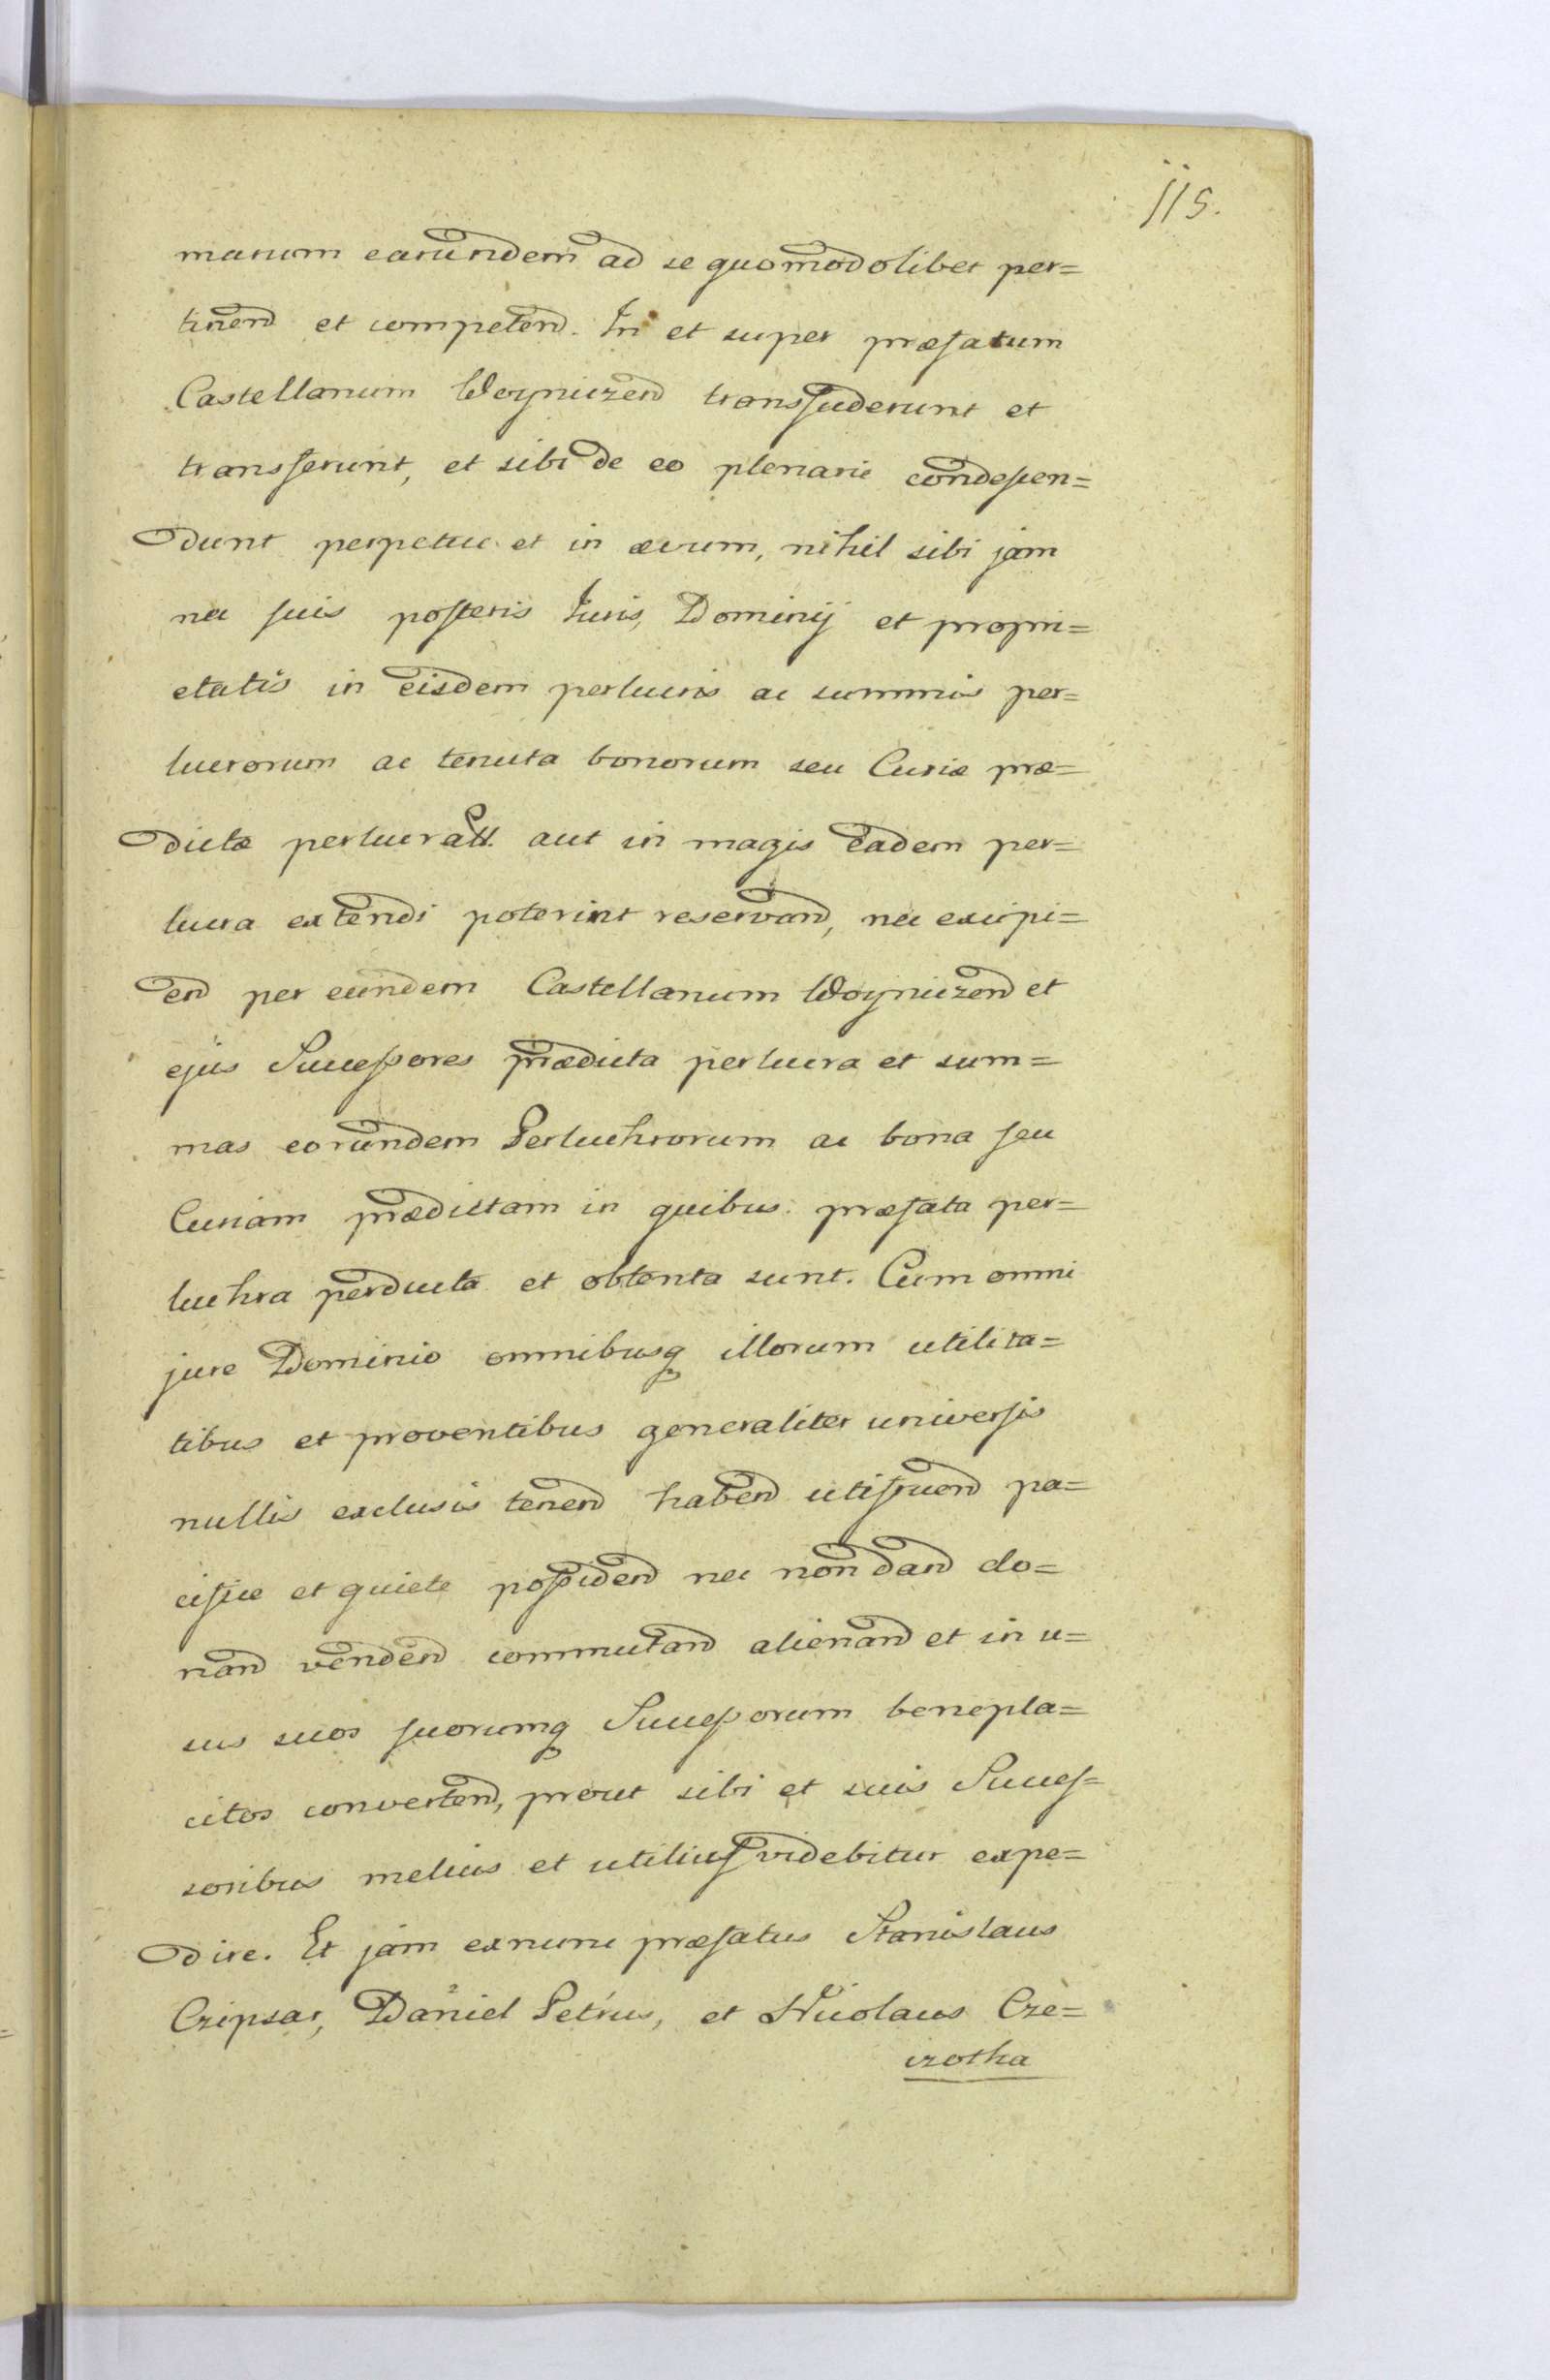 115.
marum earundem ad se quomodolibet per=
tinend et competend. In et super præfatum
Castellanum Woyniczend transfuderunt et
transferunt, et sibi de eo plenarie condescen=
dunt perpetue et in ævum, nihil sibi jam
nec suis posteris Iuris, Dominij et propri=
etatis in eisdem perlucris ac summis per=
lucrorum ac tenuta bonorum seu Curiæ præ=
dictæ perlucratt. aut in magis eadem per=
lucra extendi poterint reservand, nec excipi=
end per eundem Castellanum Woyniczend et
ejus Successores prædicta perlucra et sum=
mas eorundem Perluchrorum ac bona seu
Curiam prædictam in quibus præfata per=
luchra perducta et obtenta sunt. Cum omni
jure Dominio omnibusq illorum utilita=
tibus et proventibus generaliter universis
nullis exclusis tenend habend utifruend pa=
cifice et quiete possidend nec non dand do=
nand vendend commutand alienand et in u=
sus suos suorumq Successorum benepla=
citos convertend, prout sibi et suis Succes=
soribus melius et utilius videbitur expe=
dire. Et jam exnunc præfatus Stanislaus
Czipsar, Daniel Petrus, et Nicolaus Cze=
czotka